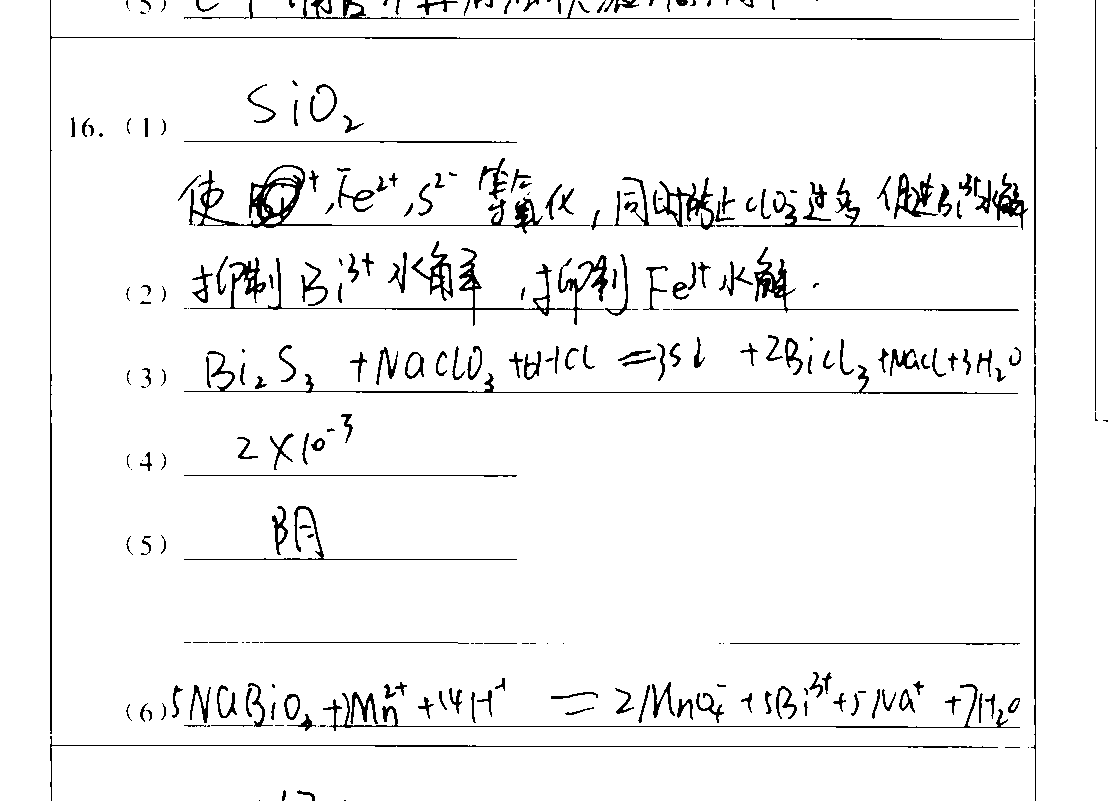 16. (1) SiO₂
使 Fe²⁺, S²⁻ 等氧化, 同时防止 ClO₃⁻ 过多 促进Bi³⁺水解
(2) 抑制 Bi³⁺ 水解, 抑制 Fe³⁺ 水解.
(3) Bi₂S₃ + NaClO₃ + 6HCl = 3S↓ + 2BiCl₃ + NaCl + 3H₂O
(4) 2×10⁻³
(5) 阴
(6) 5NaBiO₃ + 2Mn²⁺ + 14H⁺ = 2MnO₄⁻ + 5Bi³⁺ + 5Na⁺ + 7H₂O